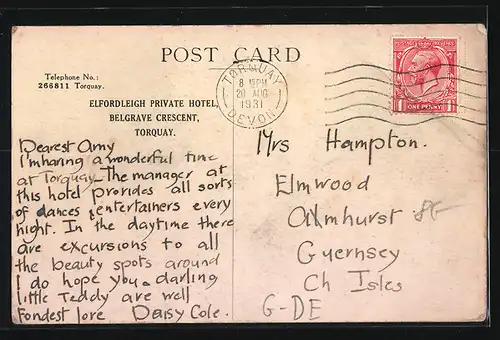 POST CARD
Telephone No.:
266811 Torquay.
ELFORDLEIGH PRIVATE HOTEL,
BELGRAVE CRESCENT,
TORQUAY.
TORQUAY
8 15PM
20 AUG
1931
DEVON
POSTAGE REVENUE
ONE PENNY
Dearest Amy
I'm having a wonderful time
at Torquay. The manager at
this hotel provides all sorts
of dances & entertainers every
night. In the daytime there
are excursions to all
the beauty spots around
I do hope you & darling
little Teddy are well
Fondest love Daisy Cole.
Mrs Hampton.
Elmwood
Almhurst
Guernsey
Ch Isles
G-DE